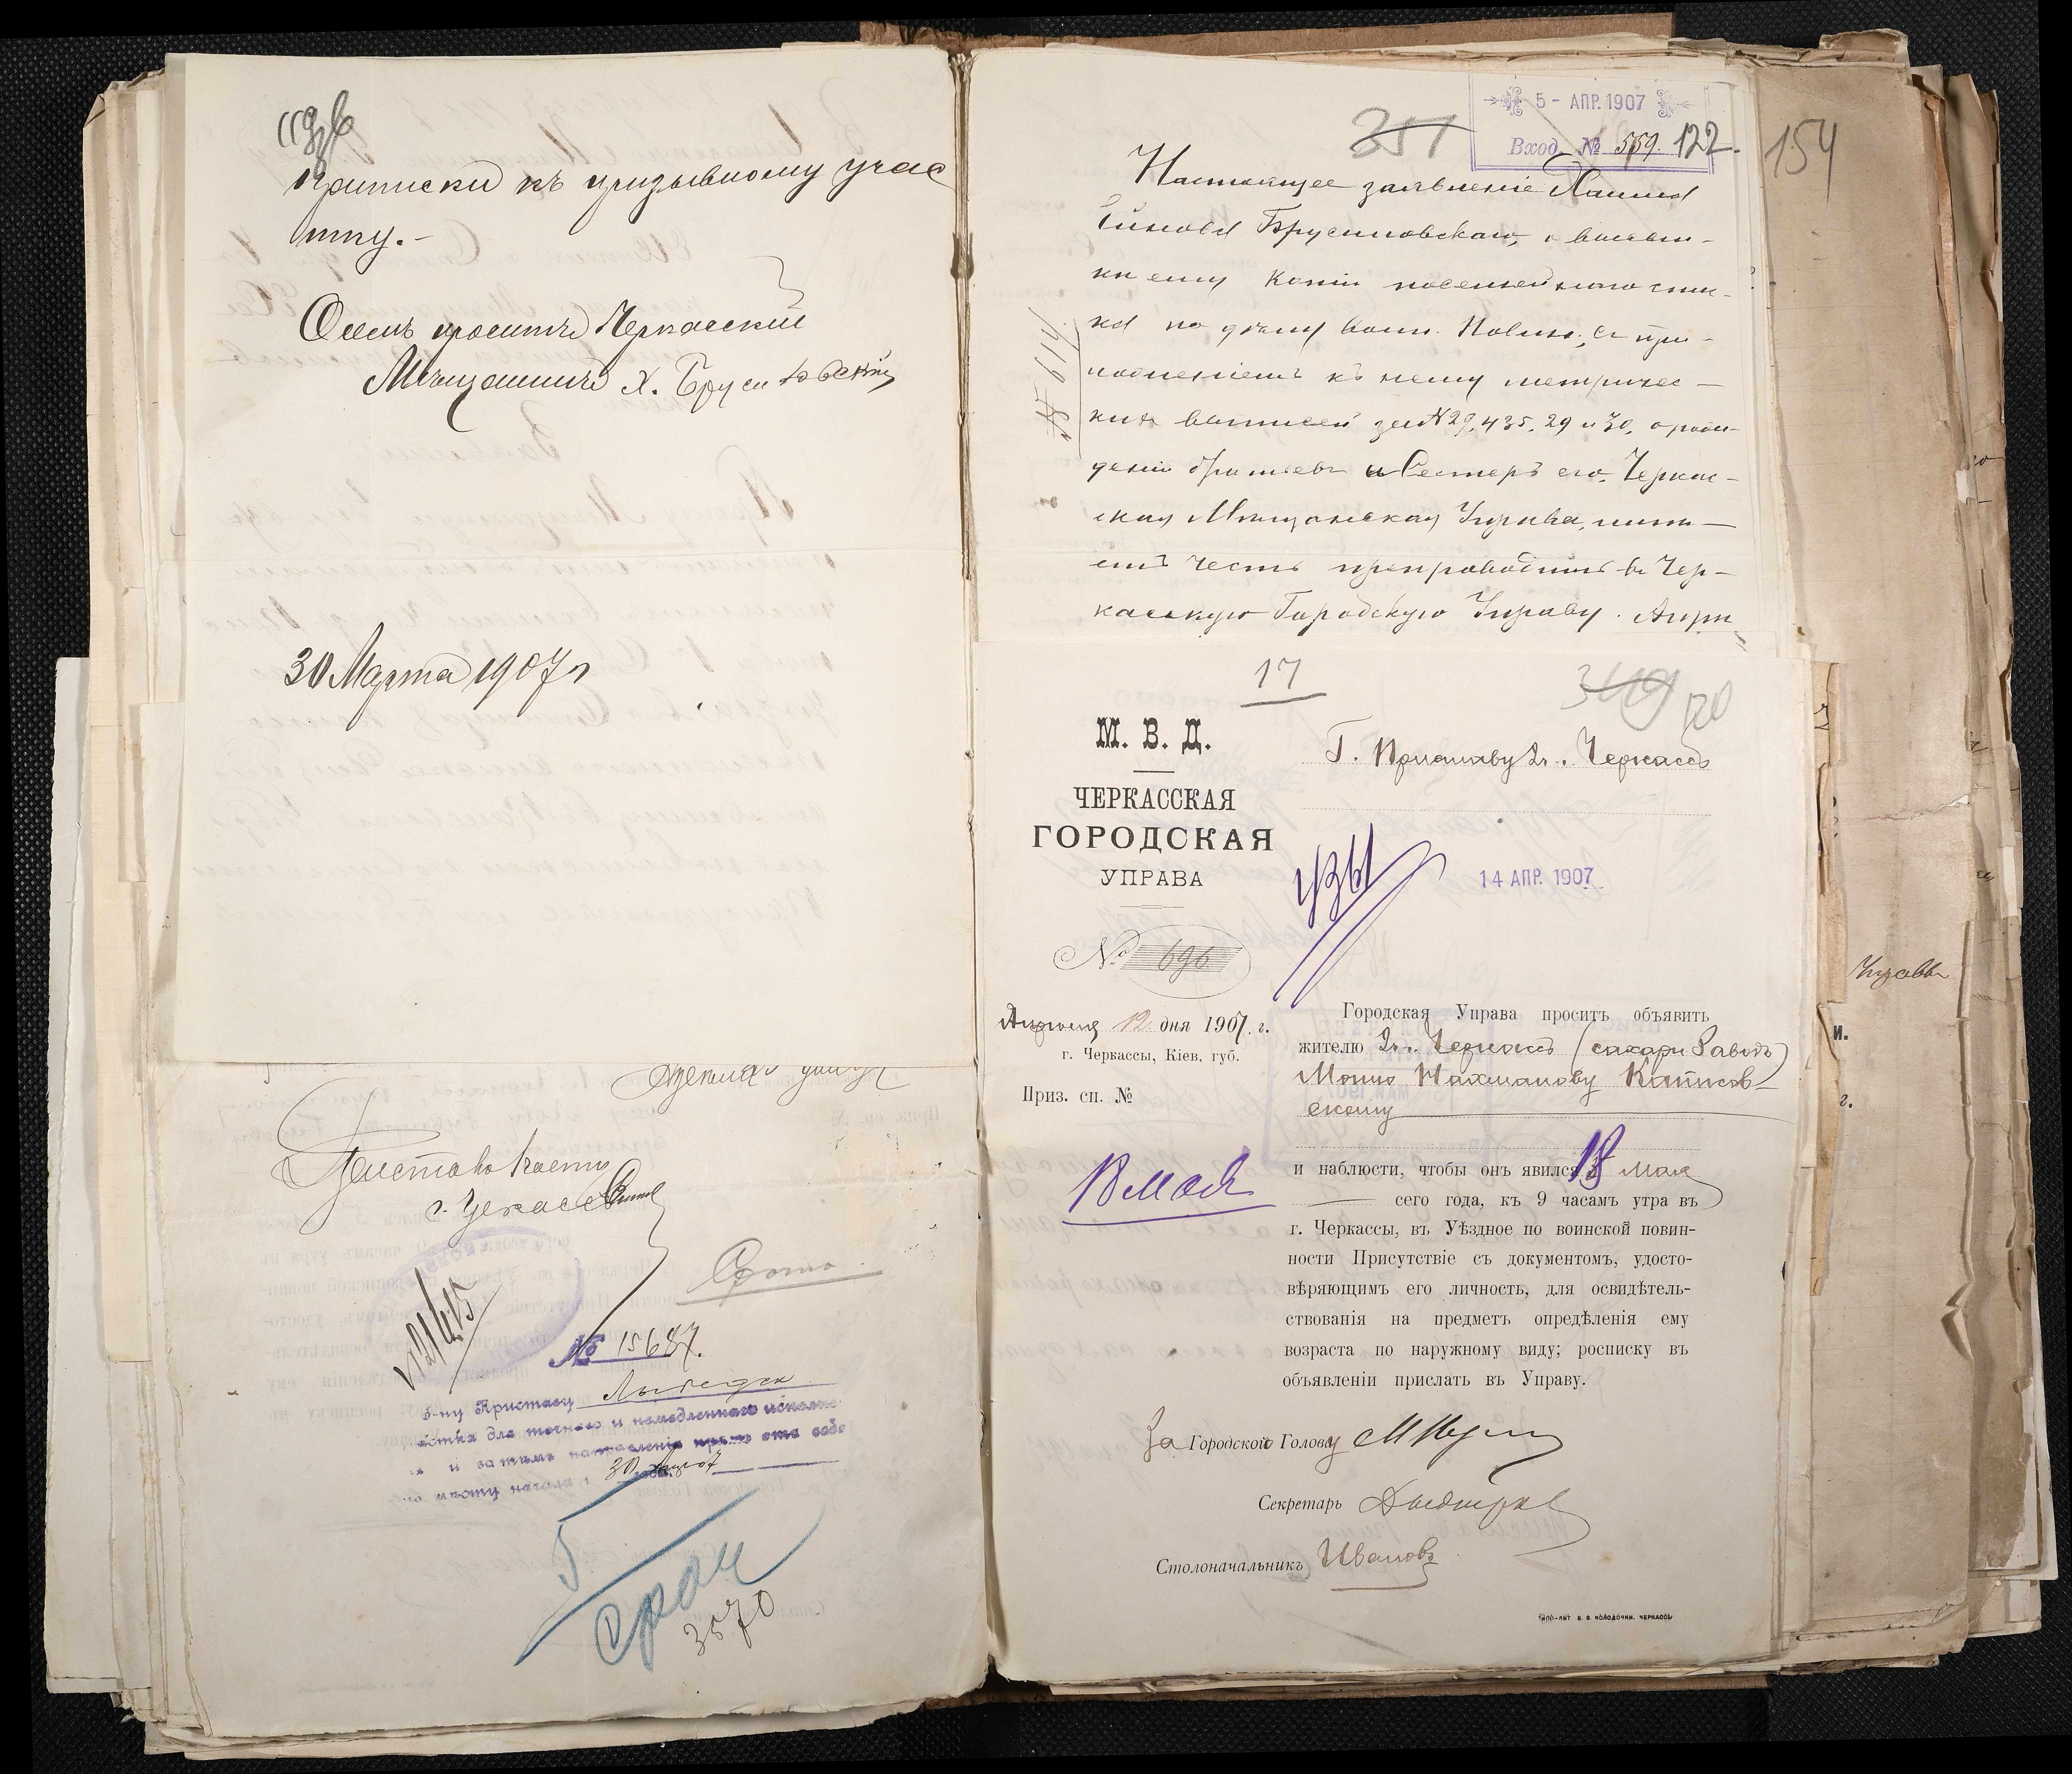 приписки къ призывному учас
тку.-
О чемъ проситъ Черкасскій
Мѣщанинъ Х. Брусиловскій
30 Марта 1907 г
Приставо части
г. Черкассъ
Срочно
№ 15687.
г-ну Приставу Лыбедск
участка для точнаго и немедленнаго исполне
и затѣмъ направленія
по мѣсту начала
30
Сроч
3570
351
5 - АПР. 1907
Вход. № 559.
122.
154
Настоящее заявленіе Хаима
Брусиловскаго, о высыл-
кѣ ему копіи посемейнаго спис-
ка по дѣлу воин. повин., съ при-
ложеніемъ къ нему метричес-
кихъ выписей за №29, 435, 29 и 30, о рож-
деніи братьевъ и Сестеръ его, Черкас-
ская Мѣщанская Управа, имѣ-
етъ честь препроводить въ Чер-
касскую Городскую Управу. Апрѣ
№ 614
17
349
120
М. В. Д.
ЧЕРКАССКАЯ
ГОРОДСКАЯ
УПРАВА
№ 696
Апрѣля 12 дня 1907 г.
г. Черкассы, Кіев. губ.
Приз. сп. №
18 мая
Г. Приставу 2 ч. Черкассъ
14 АПР. 1907
Городская Управа проситъ объявить
жителю 2 ч. Черкассъ (сахарн Заводъ)
Мошко Нахманову
скому
и наблюсти, чтобы онъ явился 18 мая
сего года, къ 9 часамъ утра въ
г. Черкассы, въ Уѣздное по воинской повин-
ности Присутствіе съ документомъ, удосто-
вѣряющимъ его личность, для освидѣтель-
ствованія на предметъ опредѣленія ему
возраста по наружному виду; росписку въ
объявленіи прислать въ Управу.
За Городского Голову
Секретарь
Столоначальникъ Ивановъ
ТИПО-ЛИТ В. В. КОЛОДОЧКИ. ЧЕРКАССЫ
Управы
и.
г.